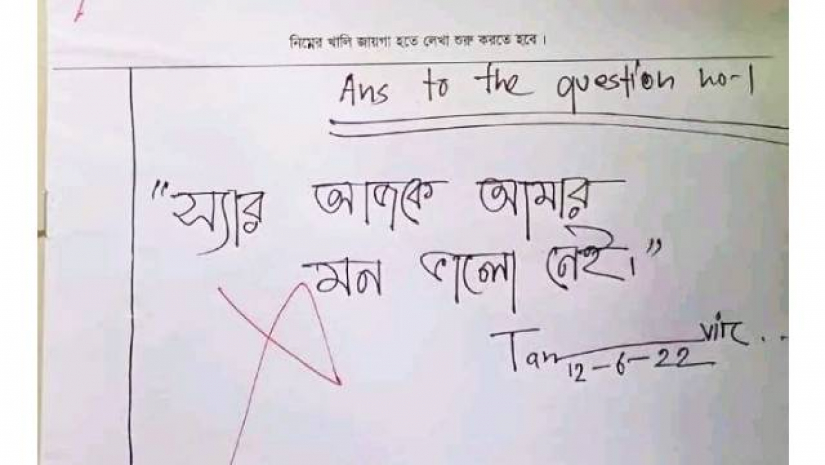 নিম্নের খালি জায়গা হতে লেখা শুরু করতে হবে।
Ans to the question no-1
"স্যার আজকে আমার
মন ভালো নেই।"
Tanvir..
12-6-22